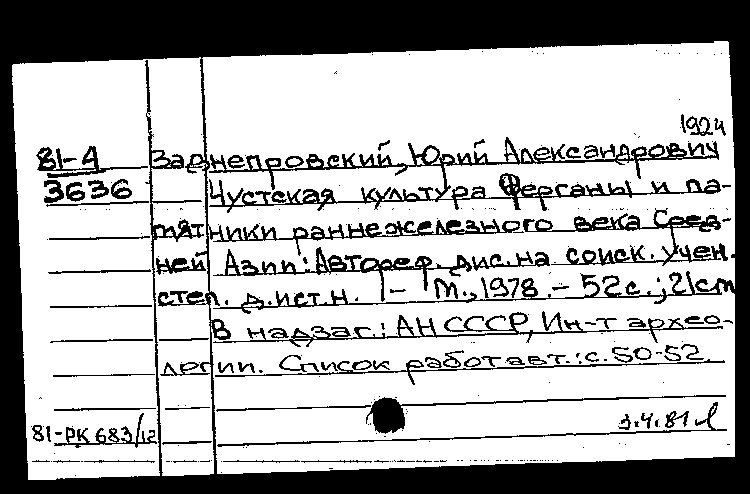 1924
81-4 Заднепровский, Юрий Александрович
3636 Чустская культура Ферганы и па-
мятники раннежелезного века Сред-
ней Азии: Автореф. дис. на соиск. учен.
степ. д. ист. н. - М., 1978. - 52 с.; 21 cm
В надзаг.: АН СССР, Ин-т архео-
логии. Список работ авт.: с. 50-52.
81-РК 683/12 3.4.81